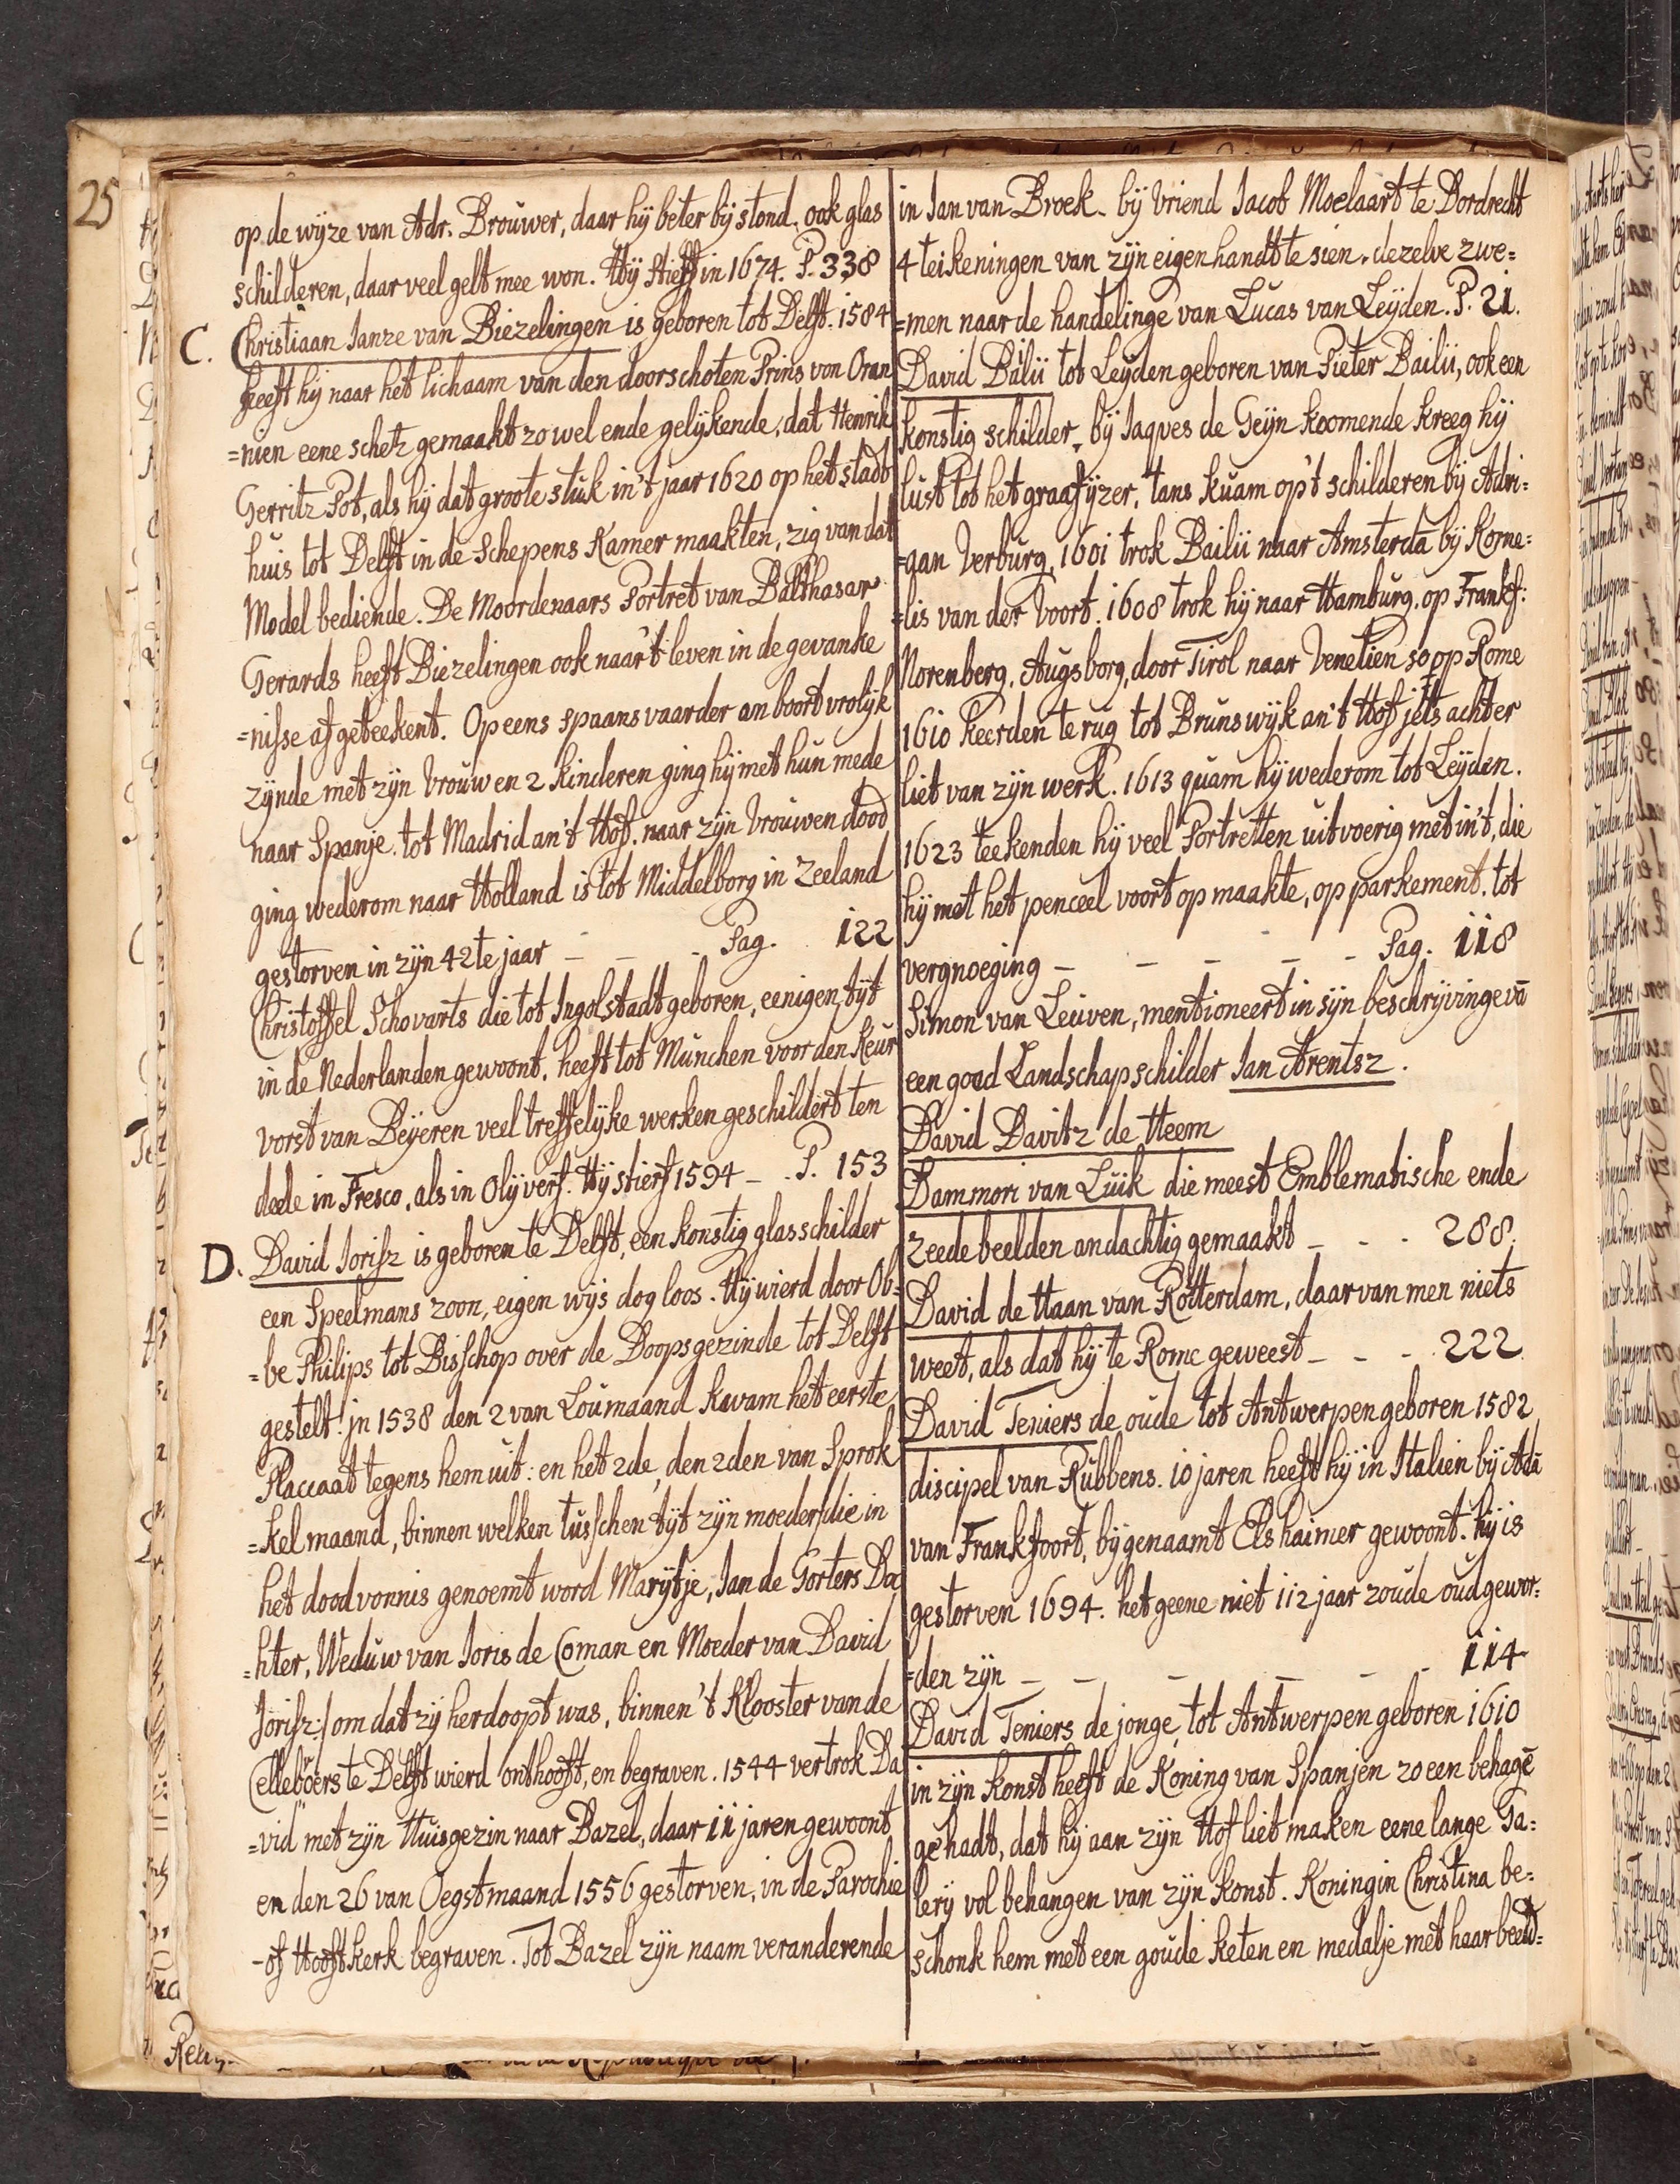 25
op de wijze van Adr. Brouwer, daar hij beter bij stond. ook glas
schilderen, daar veel gelt mee won. Hij stieff in 1674. P. 338
C. Christiaan Ianze van Biezelingen is geboren tot Delft. 1584
heeft hij naar het lichaam van den doorschoten Prins van Oran
=nien eene schetz gemaakt zo wel ende gelijkende, dat Henrik
Gerritz Pot, als hij dat groote stuk in't jaar 1620 op het stadt
huis tot Delft in de Schepens Kamer maakten, zig van dat
Model bediende. De Moordenaars Portret van Balthasar
Gerards heeft Biezelingen ook naar 't leven in de gevanke
=nisse af geteekent. Op eens spaans vaarder an boort vrolijk
zijnde met zijn vrouw en 2 kinderen ging hij met hun mede
naar Spanje. tot Madrid an't Hof. naar zijn vrouwen dood
ging wederom naar Holland is tot Middelborg in Zeeland
gestorven in zijn 42te jaar - - - Pag. 122
Christoffel Schovarts die tot Ingolstadt geboren, eenigen tijt
in de Nederlanden gewoont, heeft tot Munchen voor den Keur
vorst van Beijeren veel treffelijke werken geschildert ten
deele in Fresco, als in Olijverf. Hij stierf 1594 - - P. 153
D. David Iorisz is geboren te Delft, een konstig glasschilder
een Speelmans zoon, eigen wijs dog loos. Hij wierd door Ob=
=be Philips tot Bisschop over de Doopsgezinde tot Delft
gestelt! jn 1538 den 2 van Loumaand kwam het eerste
Placcaat tegens hem uit: en het 2de, den 2den van Sprok
=kel maand, binnen welken tusschen tijt zijn moeder/die in
het dood vonnis genoemt word Marijtje, Ian de Gorters Doc
=hter, Weduw van Ioris de Coman en Moeder van David
Iorisz:/ om dat zij herdoopt was, binnen 't Klooster vande
Celleboers te Delft wierd onthooft, en begraven. 1544 vertrok Da
=vid met zijn Huisgezin naar Bazel, daar 11 jaren gewoont
en den 26 van Oegstmaand 1556 gestorven, in de Parochie
-of Hooft kerk begraven. Tot Bazel zijn naam veranderende
in Ian van Broek. bij Vriend Iacob Moelaart te Dordrecht
4 teikeningen van zijn eigen handt te sien. dezelve zwe=
=men naar de handelinge van Lucas van Leijden. P. 21.
David Balii tot Leyden geboren van Pieter Bailii, ook een
konstig schilder, bij Iaques de Geijn koomende kreeg hij
lust tot het graafijzer, tans kuam op't schilderen bij Adri=
=aan Verburg, 1601 trok Bailii naar Amsterda bij Korne=
=lis van der Voort. 1608 trok hij naar Hamburg, op Frankf:
Norenberg, Augsborg, door Tirol naar Venetien so op Rome
1610 keerden te rug tot Brunswijk an't Hof jets achter
liet van zijn werk. 1613 quam hij wederom tot Leyden.
1623 teekenden hij veel Portretten uitvoerig met in't, die
hij met het penceel voort op maakte, op parkement. tot
vergnoeging - - - - - Pag. 118
Simon van Leuven, mentioneert in sijn beschrijvinge vā
een goed Landschap schilder Ian Arentsz.
David Davitz de Heem
Dammori van Luik die meest Emblematische ende
zeede beelden andachtig gemaakt - - - 288.
David de Haan van Rotterdam, daar van men niets
weet, als dat hij te Rome geweest - - - 222
David Teniers de oude tot Antwerpen geboren 1582
discipel van Rubbens. 10 jaren heeft hij in Italien bij Adā
van Frankfoort, bijgenaamt Elshaimer gewoont. hij is
gestorven 1694. het geene niet 112 jaar zoude oud gewor=
=den zijn - - - - - - 114
David Teniers de jonge, tot Antwerpen geboren 1610
in zijn konst heeft de Koning van Spanjen zo een behagē
gehadt, dat hij aan zijn Hof liet maken eene lange Ga=
lerij vol behangen van zijn konst. Koningin Christina be=
schonk hem met een goude keten en medalje met haar beeld=